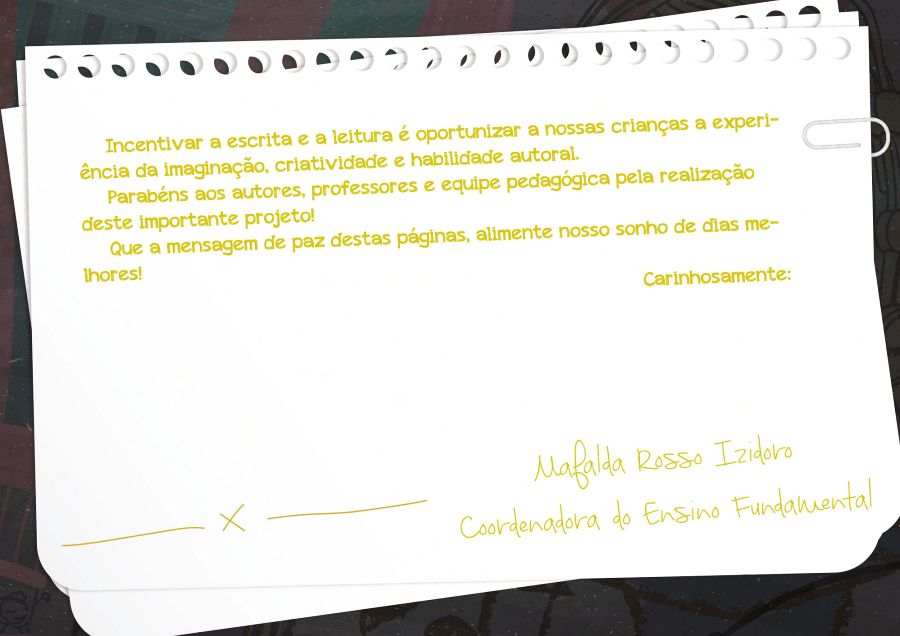 Incentivar a escrita e a leitura é oportunizar a nossas crianças a experi-
ência da imaginação, criatividade e habilidade autoral.
Parabéns aos autores, professores e equipe pedagógica pela realização
deste importante projeto!
Que a mensagem de paz destas páginas, alimente nosso sonho de dias me-
lhores!
Carinhosamente:
Mafalda Rosso Izidoro
Coordenadora do Ensino Fundamental